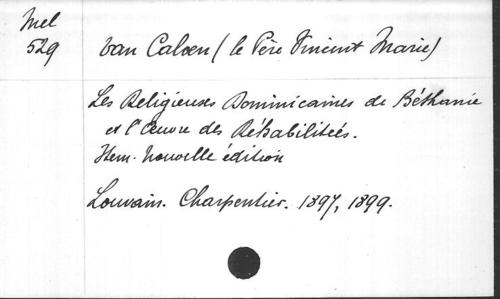 Mel
529
van Caloen (le Père Vincent Marie)
Les Religieuses Dominicaines de Béthanie
et l'Œuvre des Réhabilitées.
Item. Nouvelle édition
Louvain. Charpentier. 1897, 1899.